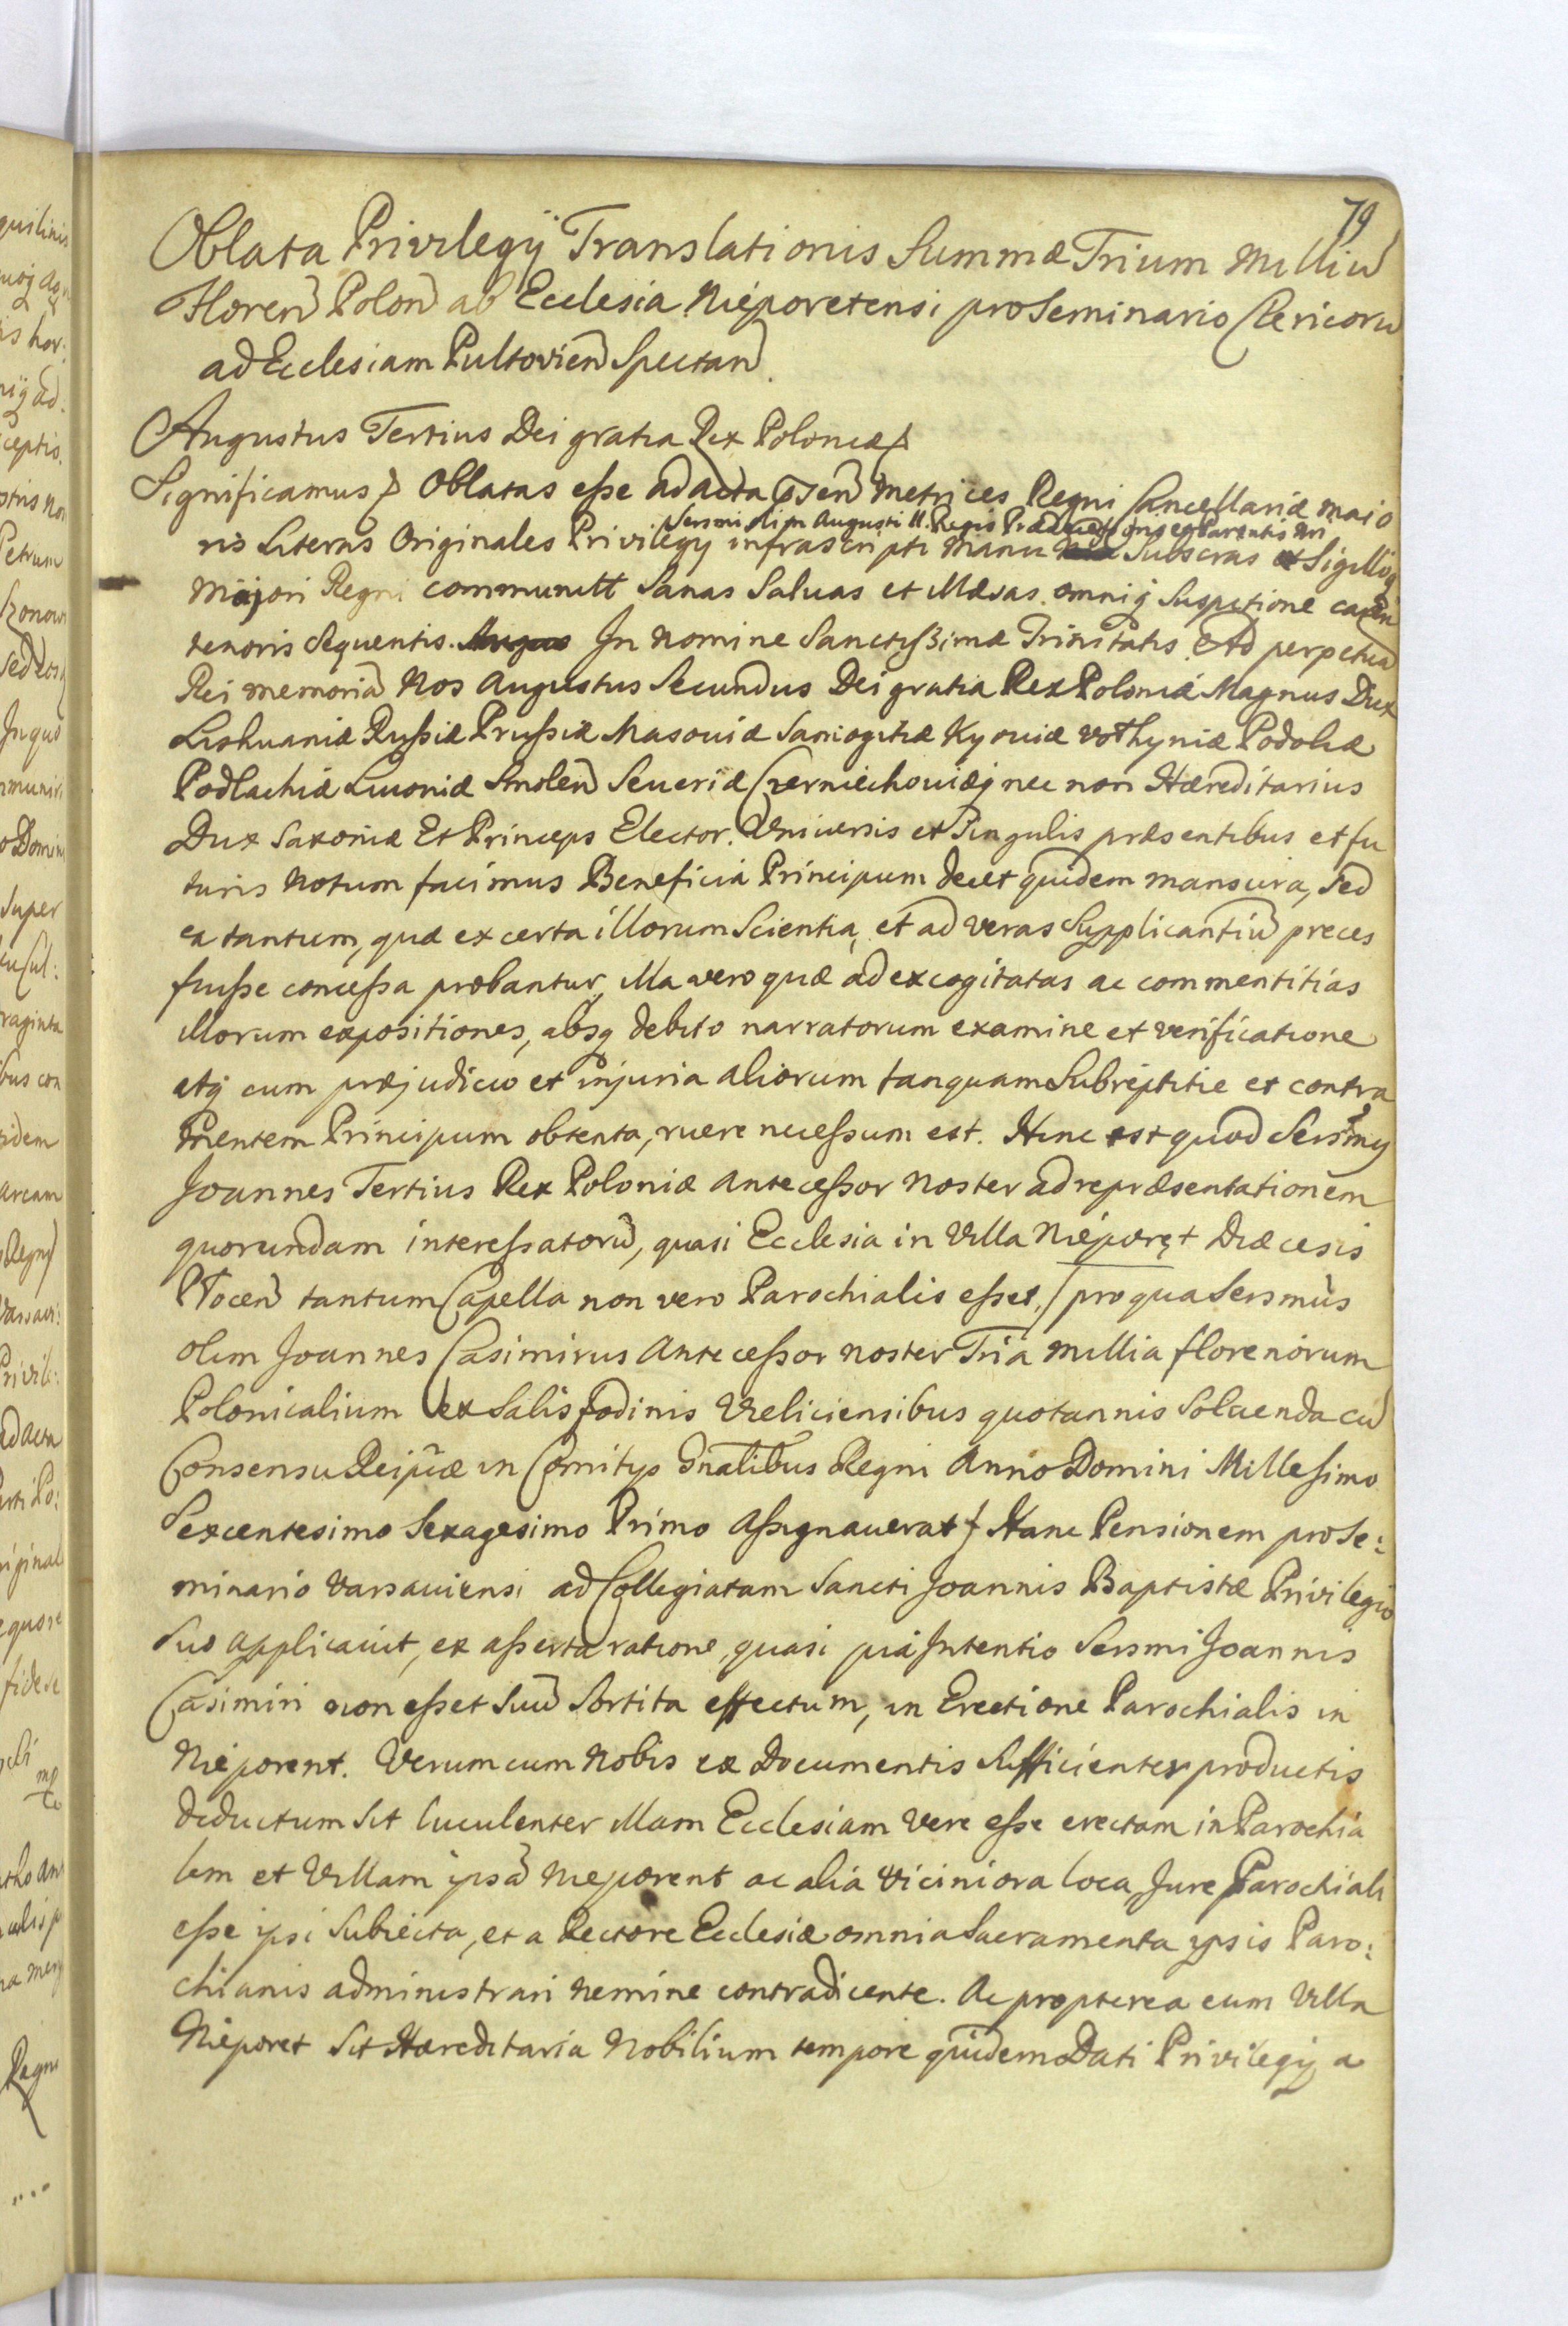 79
Oblata Privilegÿ Translationis Summæ Trium Milliu
Floren Polon ab Ecclesia Nieporetensi pro Seminario Clericoru
ad Ecclesiam Pultovien Spectan.
Augustus Tertius Dei gratia Rex Poloniæ
Significamus Oblatas esse ad acta Metrices Regni Cancellariæ maio
Sersmi olim Augusti II. Regis et Parentis nri
ris Literas Originales Privilegÿ infrascripti manu Subscras et Sigilloq
majori Regni communitt Sanas Saluas et Illæsas omniq Suspitione caren
tenoris Sequentis. In Nomine Sanctissimæ Trinitatis Ad perpetua
Rei memoria Nos Augustus Secundus Dei gratia Rex Poloniæ Magnus Dux
Lithuaniæ Russiæ Prussiæ Masouiæ Samogitiæ Kyouiæ Volhyniæ Podoliæ
Podlachiæ Liuoniæ Smolen Seueriæ Czerniechouiæq nec non Hæreditarius
Dux Saxoniæ Et Princeps Elector. Vniuersis et Singulis præsentibus et fu
turis Notum facimus Beneficia Principum decet quidem mansura, sed
ea tantum, quæ ex certa illorum Scientia, et ad veras Supplicantiu preces
fuisse concessa probantur, illa vero quæ ad excogitatas ac commentitias
illorum expositiones, absq debito narratorum examine et verificatione
atq cum præjudicio et injuria aliorum tanquam Subreptitie et contra
mentem Principum obtenta, ruere necessum est. Hinc est quod Sersmus
Joannes Tertius Rex Poloniæ Antecessor Noster ad repræsentationem
quorundam interessatoru, quasi Ecclesia in Villa Nieporęt Diæcesis
Plocen tantum Capella non vero Parochialis esset, / pro qua Sersmus
olim Joannes Casimirus Antecessor noster Tria millia florenorum
Polonicalium ex Salisfodinis Vieliciensibus quotannis Soluenda cu
Consensu Reipuæ in Comitÿs Gnalibus Regni Anno Domini Millesimo
Sexcentesimo Sexagesimo Primo Assignauerat / Hanc Pensionem pro Se:
minario Varsauiensi ad Collegiatam Sancti Joannis Baptistæ Privilegio
Suo applicauit, ex asserta ratione, quasi pia Intentio Sersmi Joannis
Casimiri non esset Suu Sortita effectum, in Erectione Parochialis in
Nieporent. Verum cum Nobis ex Documentis Sufficienter productis
deductum sit luculenter illam Ecclesiam vere esse erectam in Parochia
lem et Villam ipsa Nieporent ac alia Viciniora loca Jure Parochiali
esse ipsi Subiecta, et a Rectore Ecclesiæ omnia Sacramenta ipsis Paro:
chianis administrari nemine contradicente. Ac propterea cum Villa
Nieporet Sit Hæreditaria Nobilium tempore quidem Dati Privilegÿ a